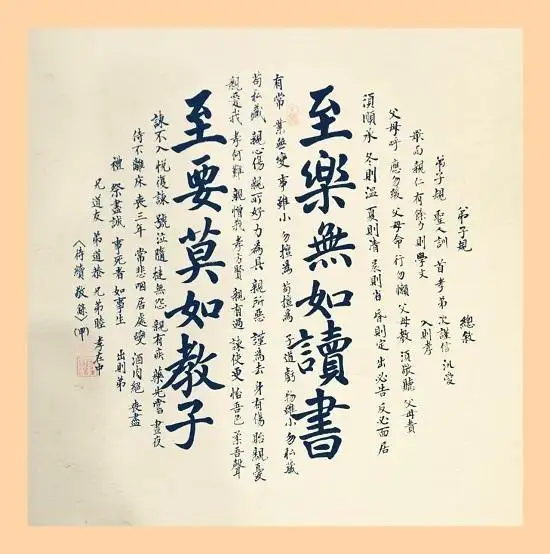 弟子規 總敘
弟子規 聖人訓 首孝弟 次謹信 汎愛
眾而親仁 有餘力 則學文 入則孝
父母呼 應勿緩 父母命 行勿懶 父母教 須敬聽 父母責
須順承 冬則溫 夏則凊 晨則省 昏則定 出必告 反必面 居
至樂無如讀書
有常 業無變 事雖小 勿擅為 苟擅為 子道虧 物雖小 勿私藏
苟私藏 親心傷 親所好 力為具 親所惡 謹為去 身有傷 貽親憂
親愛我 孝何難 親憎我 孝方賢 親有過 諫使更 怡吾色 柔吾聲
至要莫如教子
諫不入 悅復諫 號泣隨 撻無怨 親有疾 藥先嘗 晝夜
侍不離床 喪三年 常悲咽 居處變 酒肉絕 喪盡
禮 祭盡誠 事死者 如事生 出則弟
兄道友 弟道恭 兄弟睦 孝在中
〈待續 敬錄〉